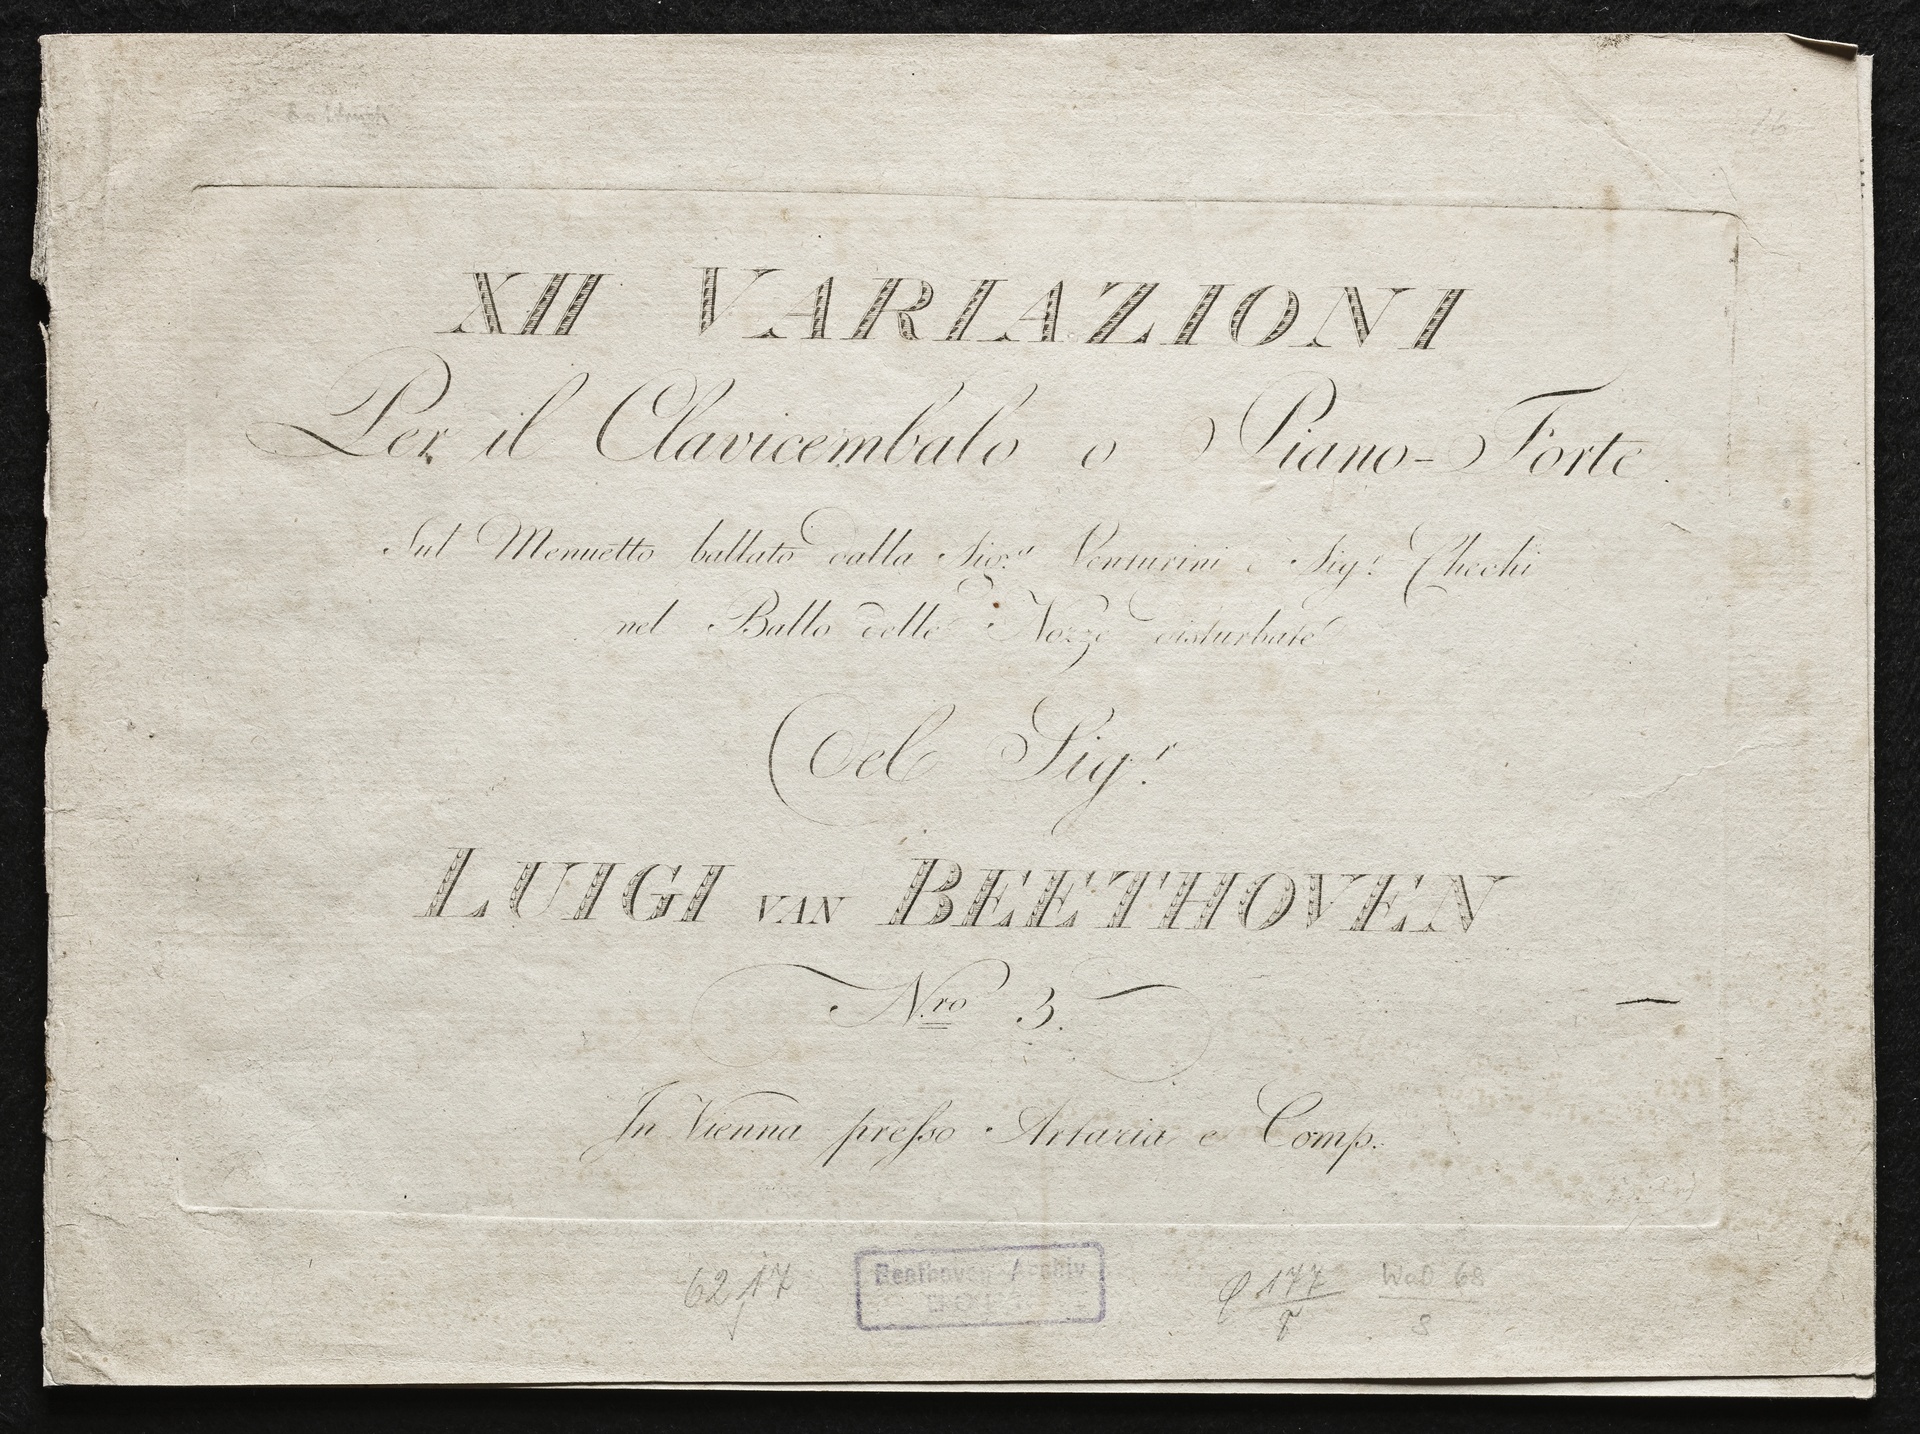 16
XII VARIAZIONI
Per il Clavicembalo o Piano-Forte.
Sul Menuetto ballato dalla Sig.ª Venturini e Sig.r Chechi
nel Ballo delle Nozze disturbate
Del Sig.r
LUIGI VAN BEETHOVEN
N.ro 3.
In Vienna presso Artaria e Comp.
62,17 Beethoven-Archiv C 177 WoO 68
8